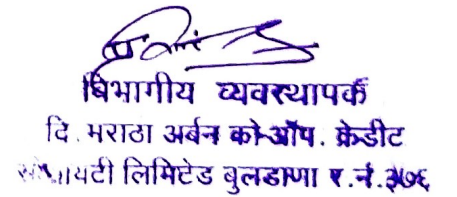 विभागीय व्यवस्थापक
दि. मराठा अर्बन को-ऑप. क्रेडीट
सोसायटी लिमिटेड बुलडाणा र.नं.३७६